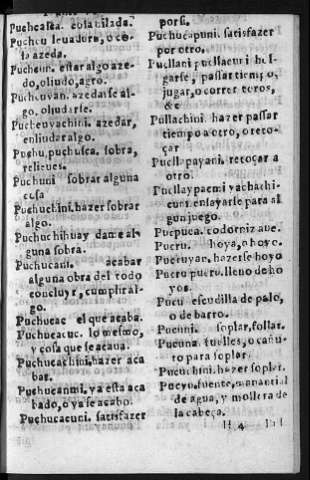 Puchcasca. cosa hilada.
Puchcu leuadura, o co-
sa azeda.
Puchcuni. estar algo aze-
do, oliudo, agro.
Puchcuyan. azedarse al-
go, oliudarse.
Puchcuyachini. azedar,
enliudar algo.
Puchu, puchusca. sobra,
relieues.
Puchuni sobrar alguna
cosa
Puchuchini. hazer sobrar
algo.
Puchuchihuay dame al-
guna sobra.
Puchucani. acabar
alguna obra del todo
concluyr, cumphr al-
go.
Puchucac el que acaba.
Puchucacuc. lo mesmo,
y cosa que se acaua.
Puchucachini. hazer aca
bar.
Puchucanmi, ya esta aca
bado, o ya se acabo.
Puchucacuni. satisfazer
por si.
Puchucapuni. satisfazer
por otro.
Pucllani pucllacuni hol-
garse, passar tiempo,
jugar, o correr toros,
&c
Pucllachini hazer passar
tiempo a otro, o reto-
çar
Pucllapayani. retoçar a
otro.
Pucllaypac mi yachachi-
cuni ensayarse para al
gun juego.
Pucpuca. codorniz aue.
Pucru. hoya, o hoyo.
Pucruyan. hazerse hoyo
Pucru pucru. lleno de ho
yos.
Pucu escudilla de palo,
o de barro.
Pucuni. soplar, follar.
Pucuna fuelles, o cañu-
to para soplar.
Pucuchini. hazer soplar.
Pucyo, fuente, o manantial
de agua, y mollera de
la cabeça.